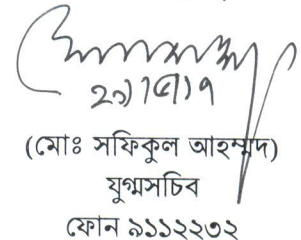 (মোঃ সফিকুল আহম্মদ)
যুগ্মসচিব
ফোন ৯১১২২৩২